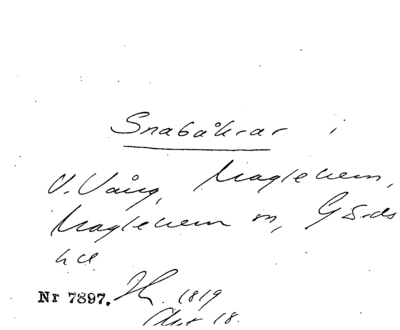 Snabåkrar i
V. Vång, Maglehem,
Maglehem sn, Gärds
hd
Nr 7897. 1819
Akt 18.